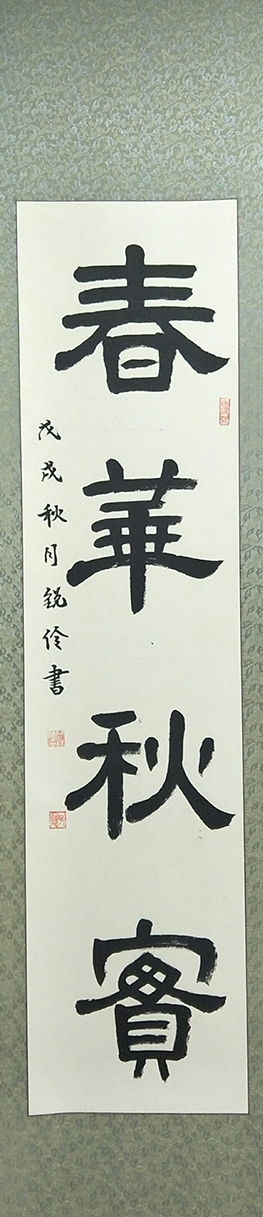 春華秋實
戊戌秋月銳伶書